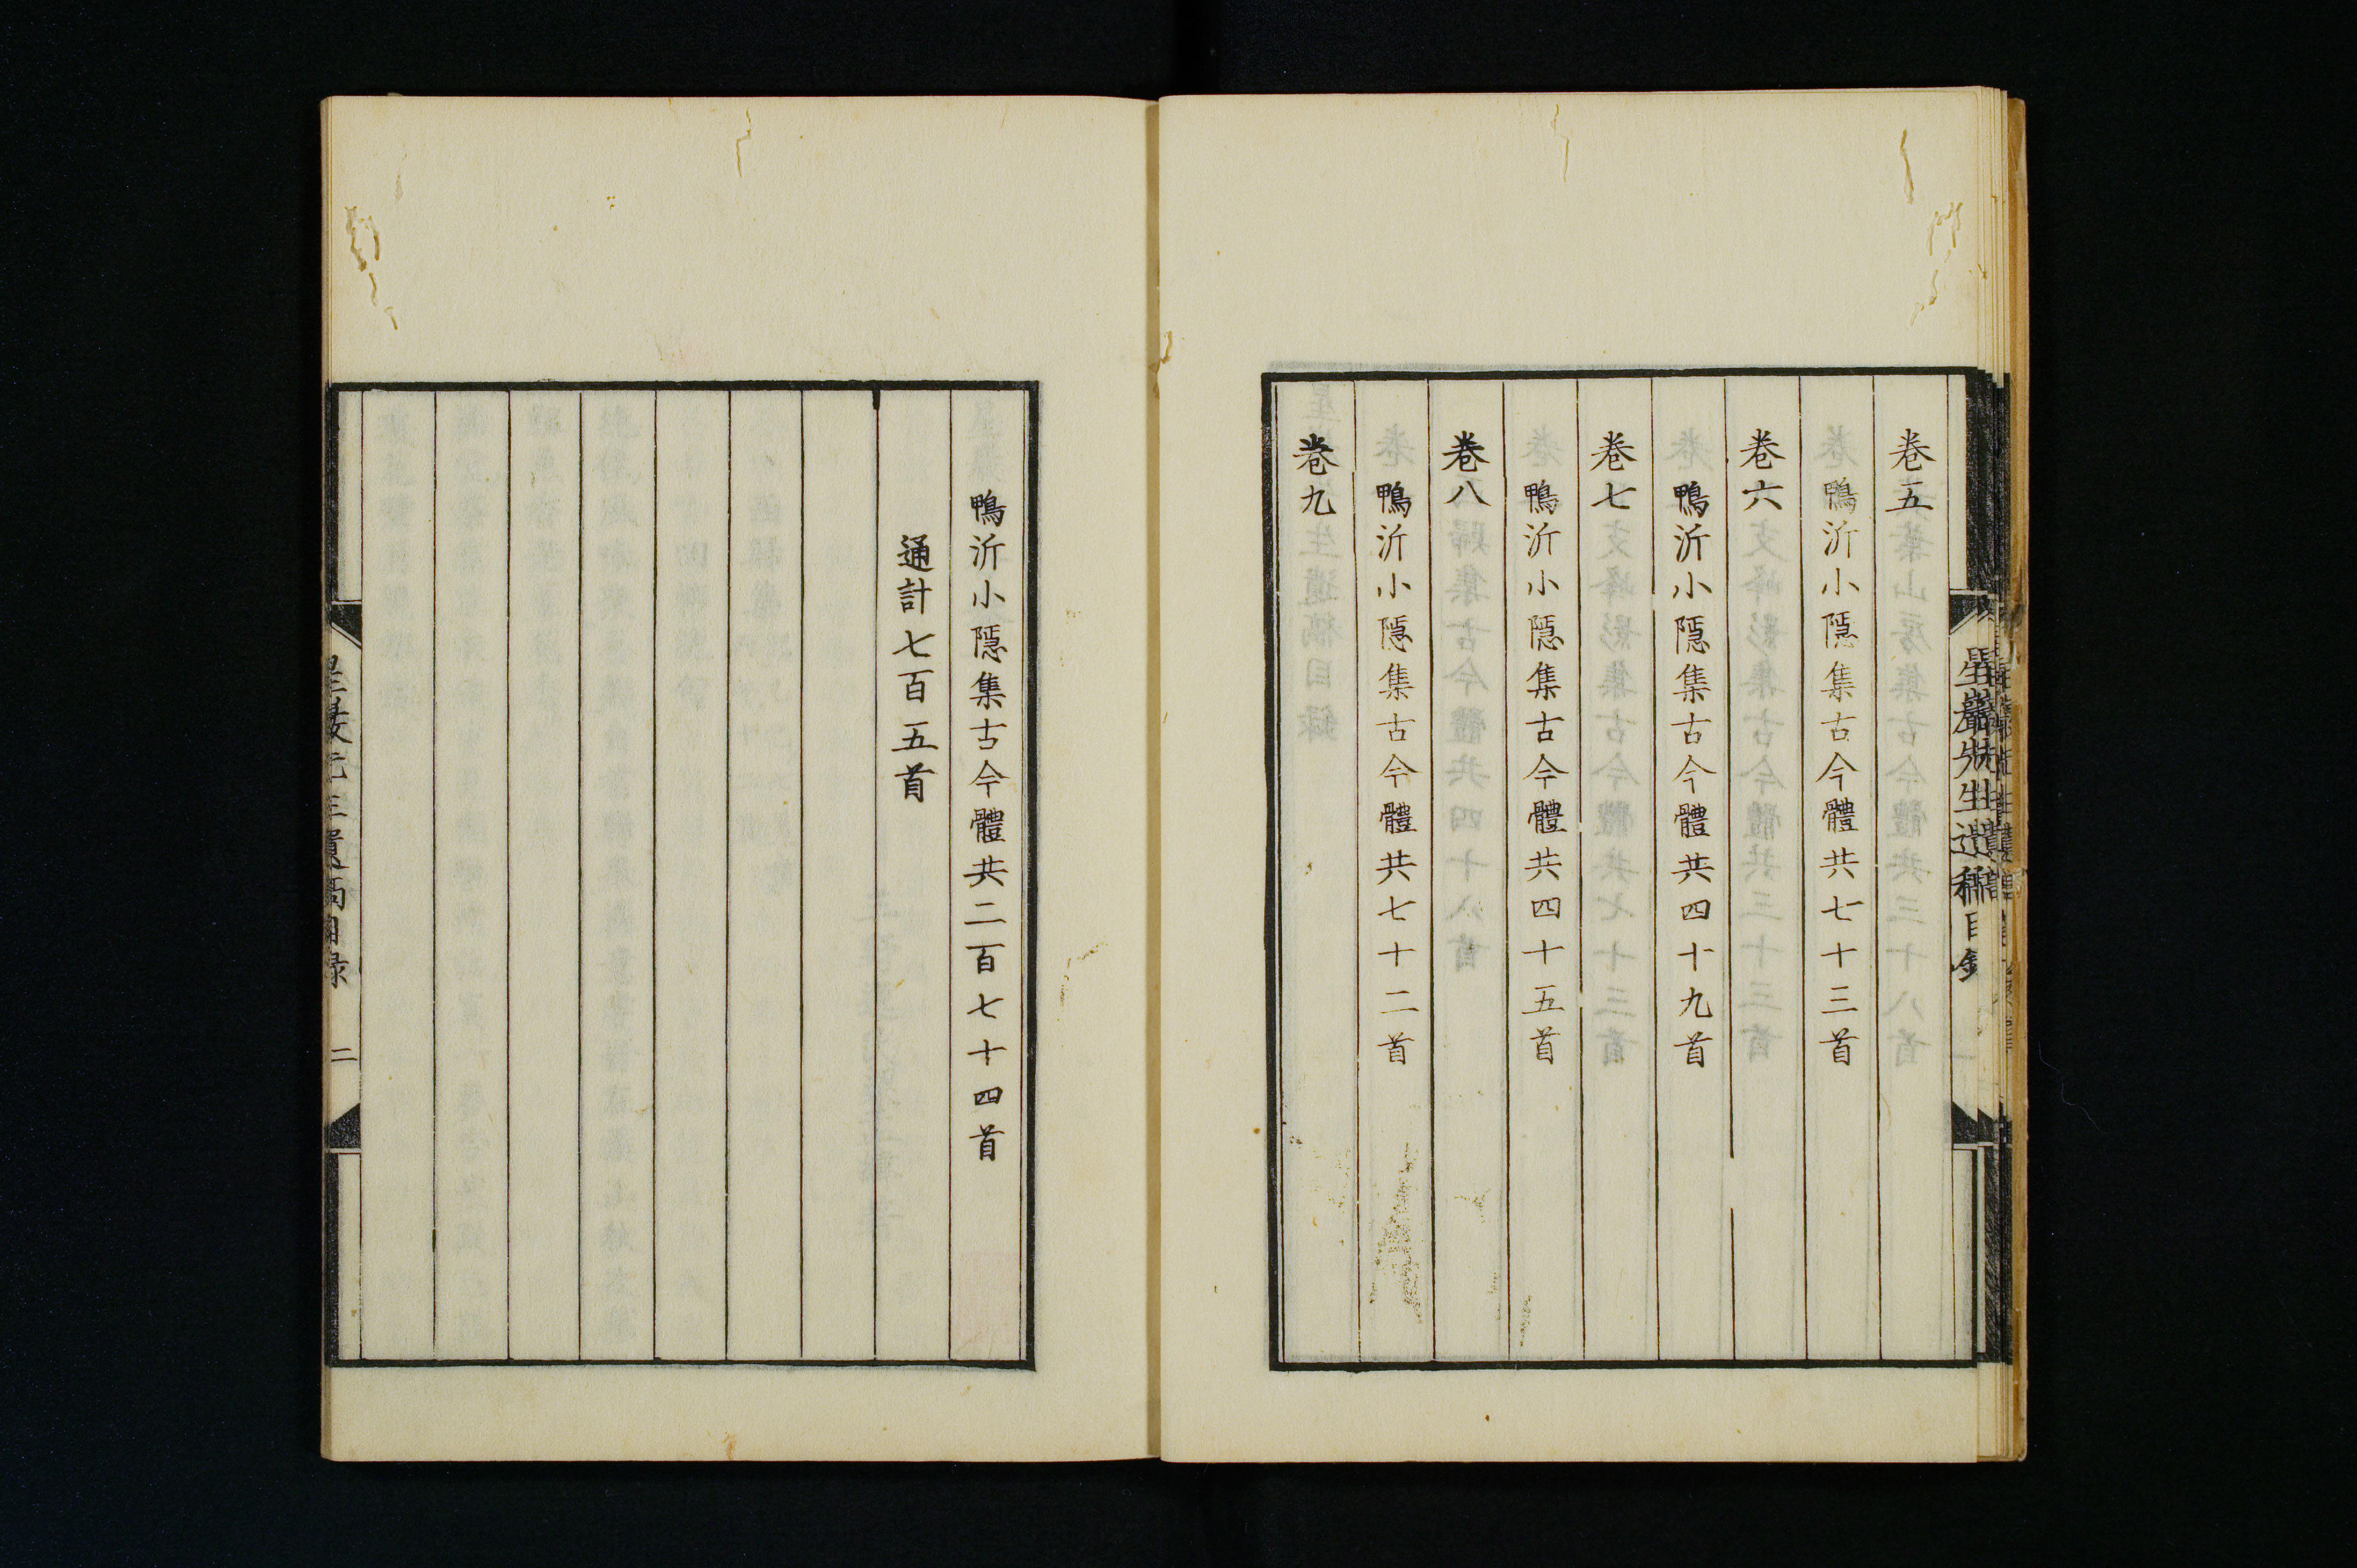 卷五
鴨沂小隱集古今體共七十三首
卷六
鴨沂小隱集古今體共四十九首
卷七
鴨沂小隱集古今體共四十五首
卷八
鴨沂小隱集古今體共七十二首
卷九
鴨沂小隱集古今體共二百七十四首
通計七百五首
星巖先生遺稿目錄 二